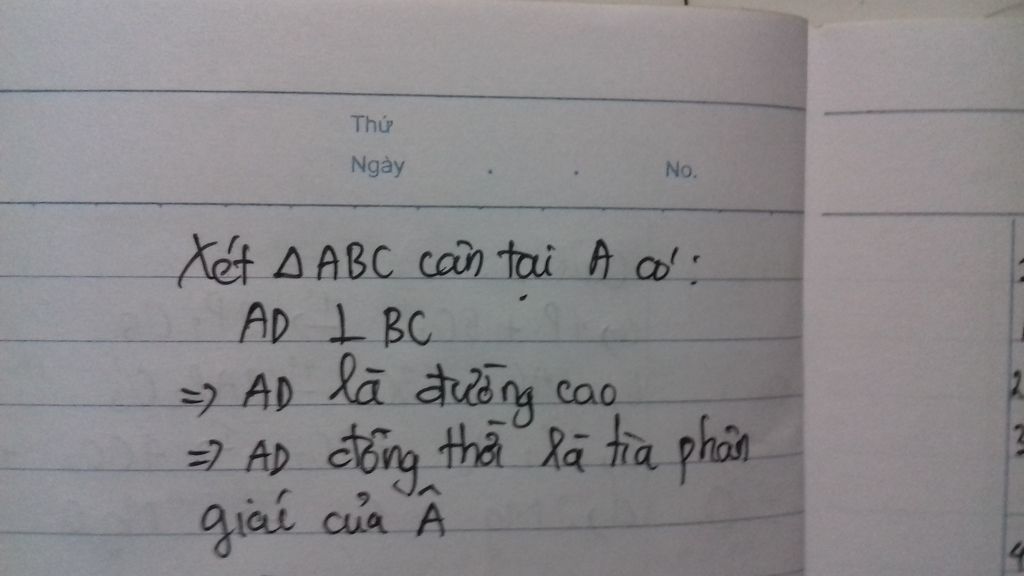 Thứ
Ngày . . No.
Xét Δ ABC cân tại A có:
AD ⊥ BC
=> AD là đường cao
=> AD đồng thời là tia phân
giác của Â
2
3
4